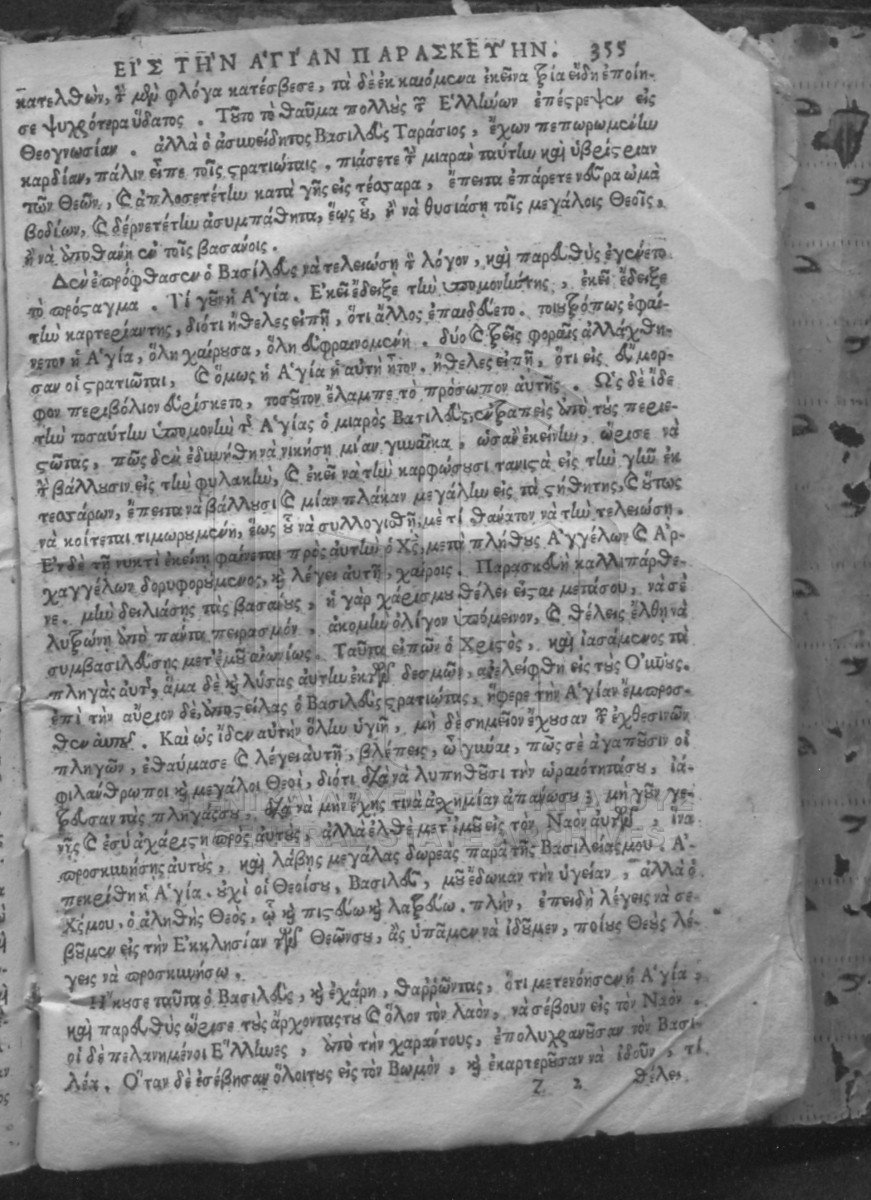 ΕΙΣ ΤΗΝ ΑΓΙΑΝ ΠΑΡΑΣΚΕΥΗΝ. 355
κατελθὼν, τὴν μὲν φλόγα κατέσβεσε, τὰ δὲ ἐκκαιόμενα ἐκεῖνα τρία εἴδη ἐποίη-
σε ψυχρότερα ὕδατος. Τοῦτο τὸ θαῦμα πολλοὺς τῶν Ἑλλήνων ἐπέστρεψεν εἰς
Θεογνωσίαν. ἀλλὰ ὁ ἀσυνείδητος Βασιλεὺς Ταράσιος, ἔχων πεπωρωμένην
καρδίαν, πάλιν εἶπε τοῖς στρατιώταις. πιάσετε τὴν μιαρὰν ταύτην καὶ ὑβρίστριαν
τῶν Θεῶν, καὶ ἁπλοσετέτην κατὰ γῆς εἰς τέσσαρα, ἔπειτα ἐπάρετε νεῦρα ὠμὰ
βοδίων, καὶ δέρνετέτην ἀσυμπάθητα, ἕως οὗ, ἢ νὰ θυσιάσῃ τοῖς μεγάλοις Θεοῖς,
ἢ νὰ ἀποθάνῃ ἐν τοῖς βασάνοις.
Δὲν ἐπρόφθασεν ὁ Βασιλεὺς νὰ τελειώσῃ τὸν λόγον, καὶ παρευθὺς ἐγένετο
τὸ πρόσταγμα. Τί γοῦν ἡ Ἁγία. Ἐκεῖ ἔδειξε τὴν ὑπομονήντης, ἐκεῖ ἔδειξε
τὴν καρτερίαντης, διότι ἤθελες εἰπῇ, ὅτι ἄλλος ἐπαιδεύετο. τοιουτρόπως ἐφαί-
νετον ἡ Ἁγία, ὅλη χαίρουσα, ὅλη εὐφραινομένη. δύο καὶ τρεῖς φοραῖς ἀλλάχθη-
σαν οἱ στρατιῶται, καὶ ὅμως ἡ Ἁγία ἡ αὐτὴ ἦτον. ἤθελες εἰπῇ, ὅτι εἰς εὔμορ-
φον περιβόλιον εὑρίσκετο, τοσοῦτον ἔλαμπε τὸ πρόσωπον αὐτῆς. Ὡς δὲ ἴδε
τὴν τοσαύτην ὑπομονὴν τῆς Ἁγίας ὁ μιαρὸς Βασιλεὺς, ἐντραπεὶς ἀπὸ τοὺς περιε-
στῶτας, πῶς δὲν ἐδυνήθη νὰ νικήσῃ μίαν γυναῖκα, ὡσὰν ἐκείνην, ὥρισε νὰ
τὴν βάλλουσιν εἰς τὴν φυλακὴν, καὶ ἐκεῖ νὰ τὴν καρφώσουσι τανιστὰ εἰς τὴν γῆν ἐκ
τεσσάρων, ἔπειτα νὰ βάλλουσι καὶ μίαν πλάκαν μεγάλην εἰς τὰ στήθητης, καὶ οὕτως
νὰ κοίτεται τιμωρουμένη, ἕως οὗ νὰ συλλογισθῇ, μὲ τί θάνατον νὰ τὴν τελειώσῃ.
Ἐν δὲ τῇ νυκτὶ ἐκείνῃ φαίνεται πρὸς αὐτὴν ὁ Χς, μετὰ πλήθους Ἀγγέλων καὶ Ἀρ-
χαγγέλων δορυφορούμενος, καὶ λέγει αὐτῇ, χαίροις. Παρασκευὴ καλλιπάρθε-
νε. μὴν δειλιάσῃς τὰς βασάνους, ἡ γὰρ χάρισμου θέλει εἶσται μετάσου, νὰ σὲ
λυτρώνῃ ἀπὸ πάντα πειρασμόν. ἀκομὴν ὀλίγον ὑπόμεινον, καὶ θέλεις ἔλθῃ νὰ
συμβασιλεύσῃς μετ' ἐμοῦ αἰωνίως. Ταῦτα εἰπὼν ὁ Χριστὸς, καὶ ἰασάμενος τὰς
πληγὰς αὐτῆς, ἅμα δὲ καὶ λύσας αὐτὴν ἐκ τῶν δεσμῶν, ἀνελείφθη εἰς τοὺς Οὐνοὺς.
ἐπὶ τὴν αὔριον δὲ, ἀποστείλας ὁ Βασιλεὺς στρατιώτας, ἤφερε τὴν Ἁγίαν ἔμπροσ-
θεν αὐτοῦ. Καὶ ὡς ἴδεν αὐτὴν ὅλην ὑγιῆ, μὴ δὲ σημεῖον ἔχουσαν τῶν ἐχθεσινῶν
πληγῶν, ἐθαύμασε καὶ λέγει αὐτῇ, βλέπεις, ὦ γύναι, πῶς σὲ ἀγαποῦσιν οἱ
φιλάνθρωποι καὶ μεγάλοι Θεοὶ, διότι διὰ νὰ λυπηθοῦσι τὴν ὡραιότητάσου, ἰά-
τρευσαν τὰς πληγάςσου, διὰ νὰ μὴν ἔχῃς τινὰ ἀσχημίαν ἀπάνωσου; μὴ γοῦν γε-
νῇς καὶ ἐσὺ ἀχάριστη πρὸς αὐτοὺς, ἀλλὰ ἐλθὲ μετ' ἐμοῦ εἰς τὸν Ναὸν αὐτῶν, ἵνα
προσκυνήσῃς αὐτοὺς, καὶ λάβῃς μεγάλας δωρεὰς παρὰ τῆς Βασιλείαςμου. Ἀ-
πεκρίθη ἡ Ἁγία. οὐχὶ οἱ Θεοίσου, Βασιλεῦ, μοῦ ἔδωκαν τὴν ὑγείαν, ἀλλὰ ὁ
Χςμου. ὁ ἀληθὴς Θεὸς, ᾧ καὶ πιστεύω καὶ λατρεύω. πλὴν, ἐπειδὴ λέγεις νὰ σέ-
βωμεν εἰς τὴν Ἐκκλησίαν τῶν Θεῶνσου, ἂς ὑπᾶμεν νὰ ἰδοῦμεν, ποίους Θεοὺς λέ-
γεις νὰ προσκυνήσω.
Ἤκουσε ταῦτα ὁ Βασιλεὺς, καὶ ἐχάρη, θαῤῥῶντας, ὅτι μετενόησεν ἡ Ἁγία,
καὶ παρευθὺς ὥρισε τοὺς ἄρχονταςτου καὶ ὅλον τὸν λαὸν, νὰ σέβουν εἰς τὸν Ναόν.
οἱ δὲ πελανημένοι Ἕλληνες, ἀπὸ τὴν χαράντους, ἐπολυχρανοῦσαν τὸν Βασι-
λέα. Ὅταν δὲ ἐσέβησαν ὅλοιτους εἰς τὸν Βωμὸν, καὶ ἐκαρτεροῦσαν νὰ ἰδοῦν, τί
Z 2 θέλει
GENERAL STATE ARCHIVES